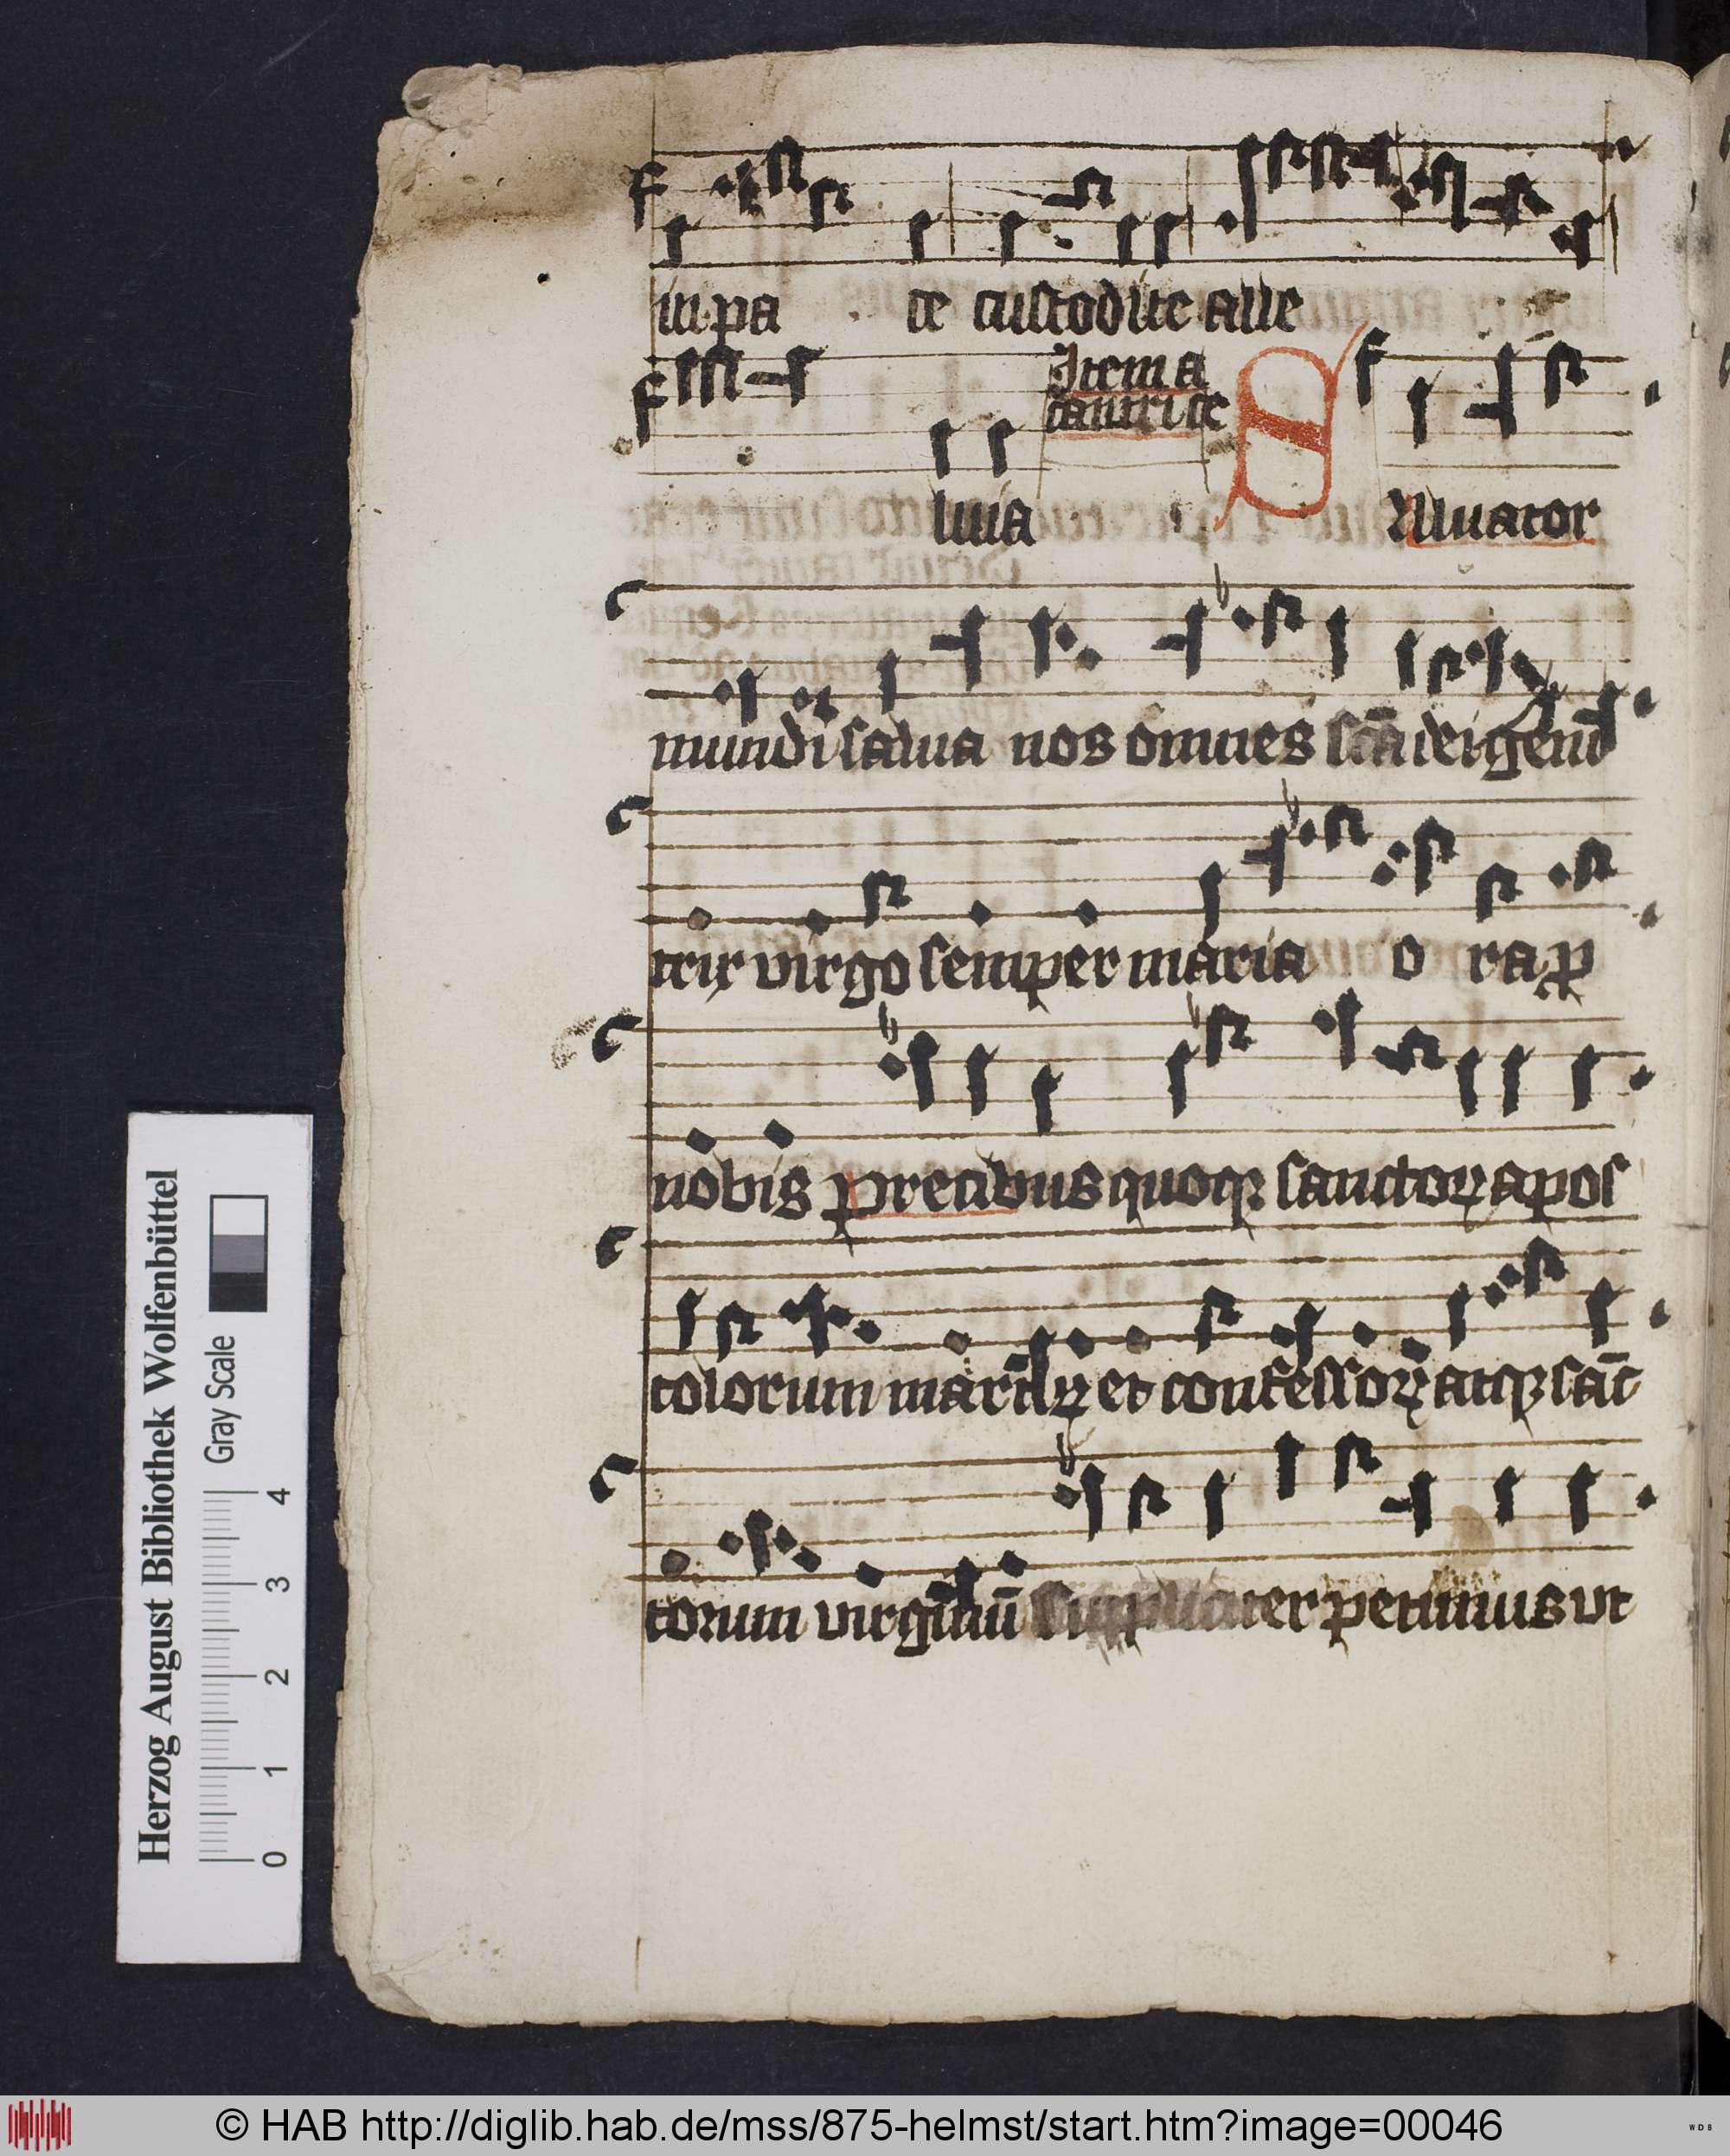 in pa ce custodite alle
Item a
cantrice
luia Alluator
mundi salua nos omnes sc̄a dei geni
trix virgo semper maria o ra ꝓ
nobis precibus quoqꝫ sanctoꝝ apos
tolorum martirꝝ et confessoꝝ atqꝫ sāc
torum virginū suppliciter petimus vt
Herzog August Bibliothek Wolfenbüttel
Gray Scale
0 1 2 3 4
© HAB http://diglib.hab.de/mss/875-helmst/start.htm?image=00046
WDB